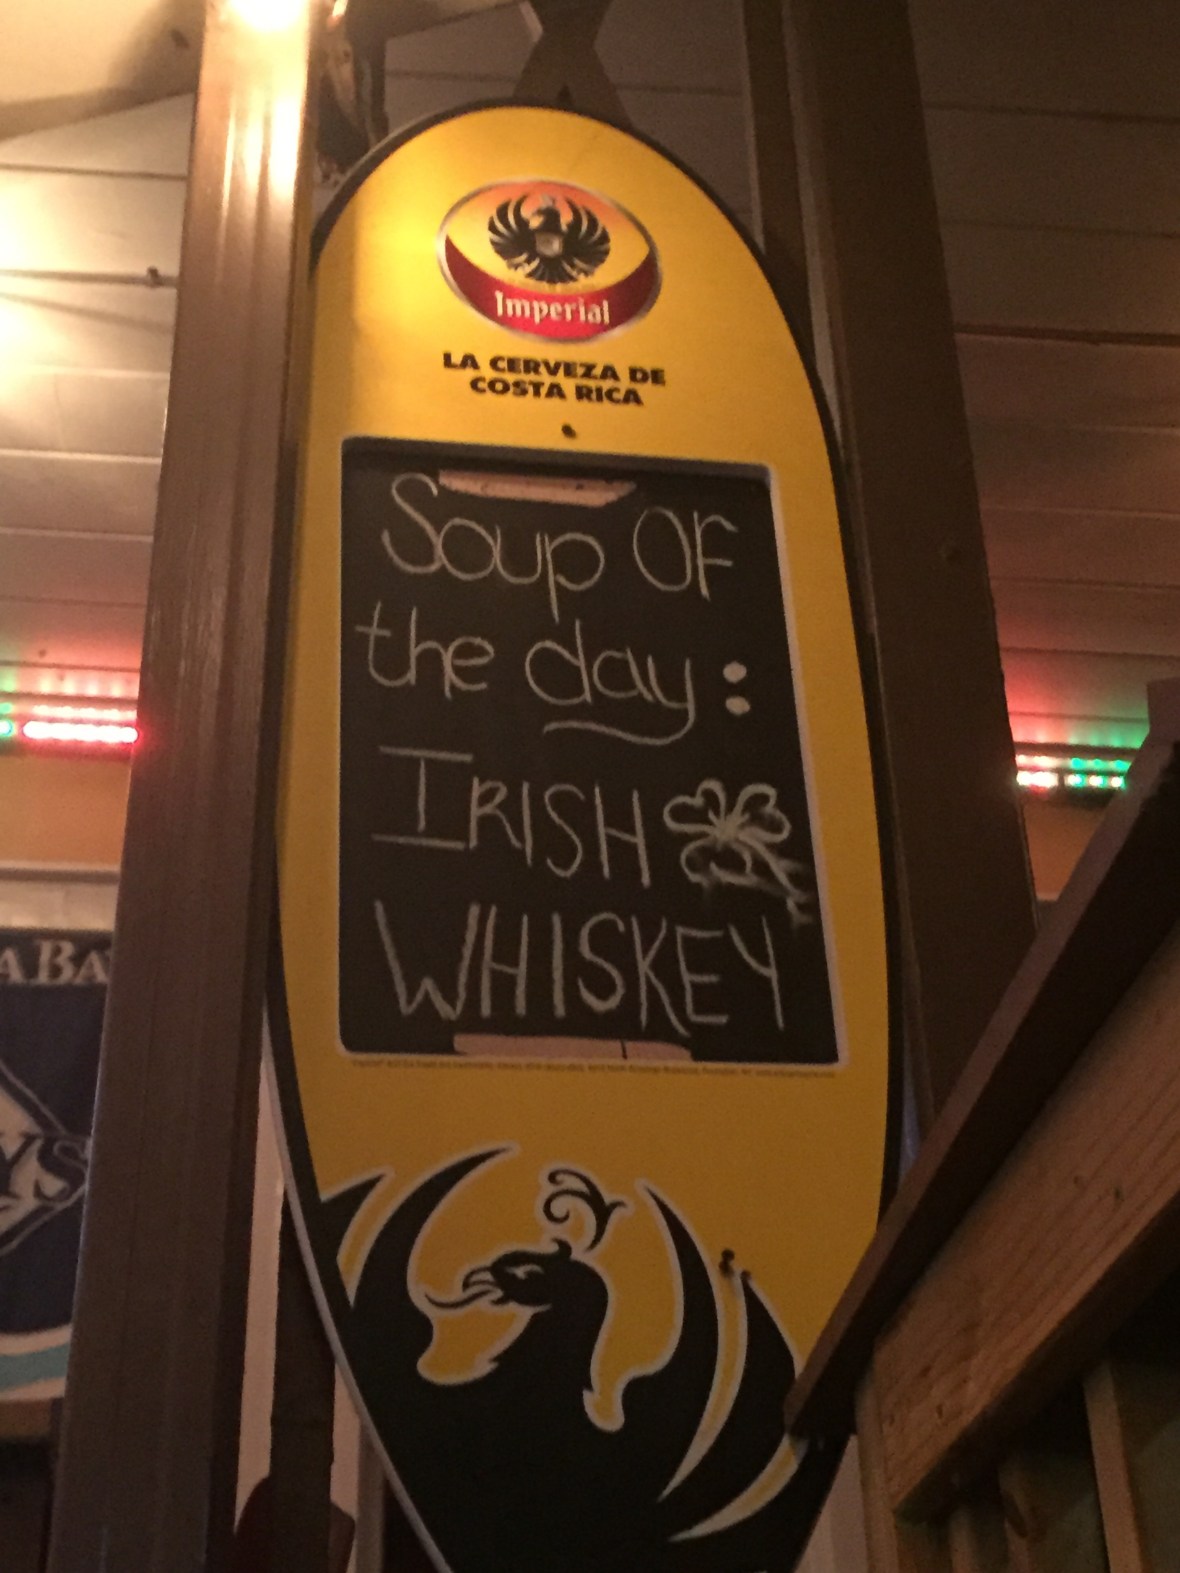 Imperial
LA CERVEZA DE
COSTA RICA
Soup OF
the day:
IRISH
WHISKEY
ABA
YS